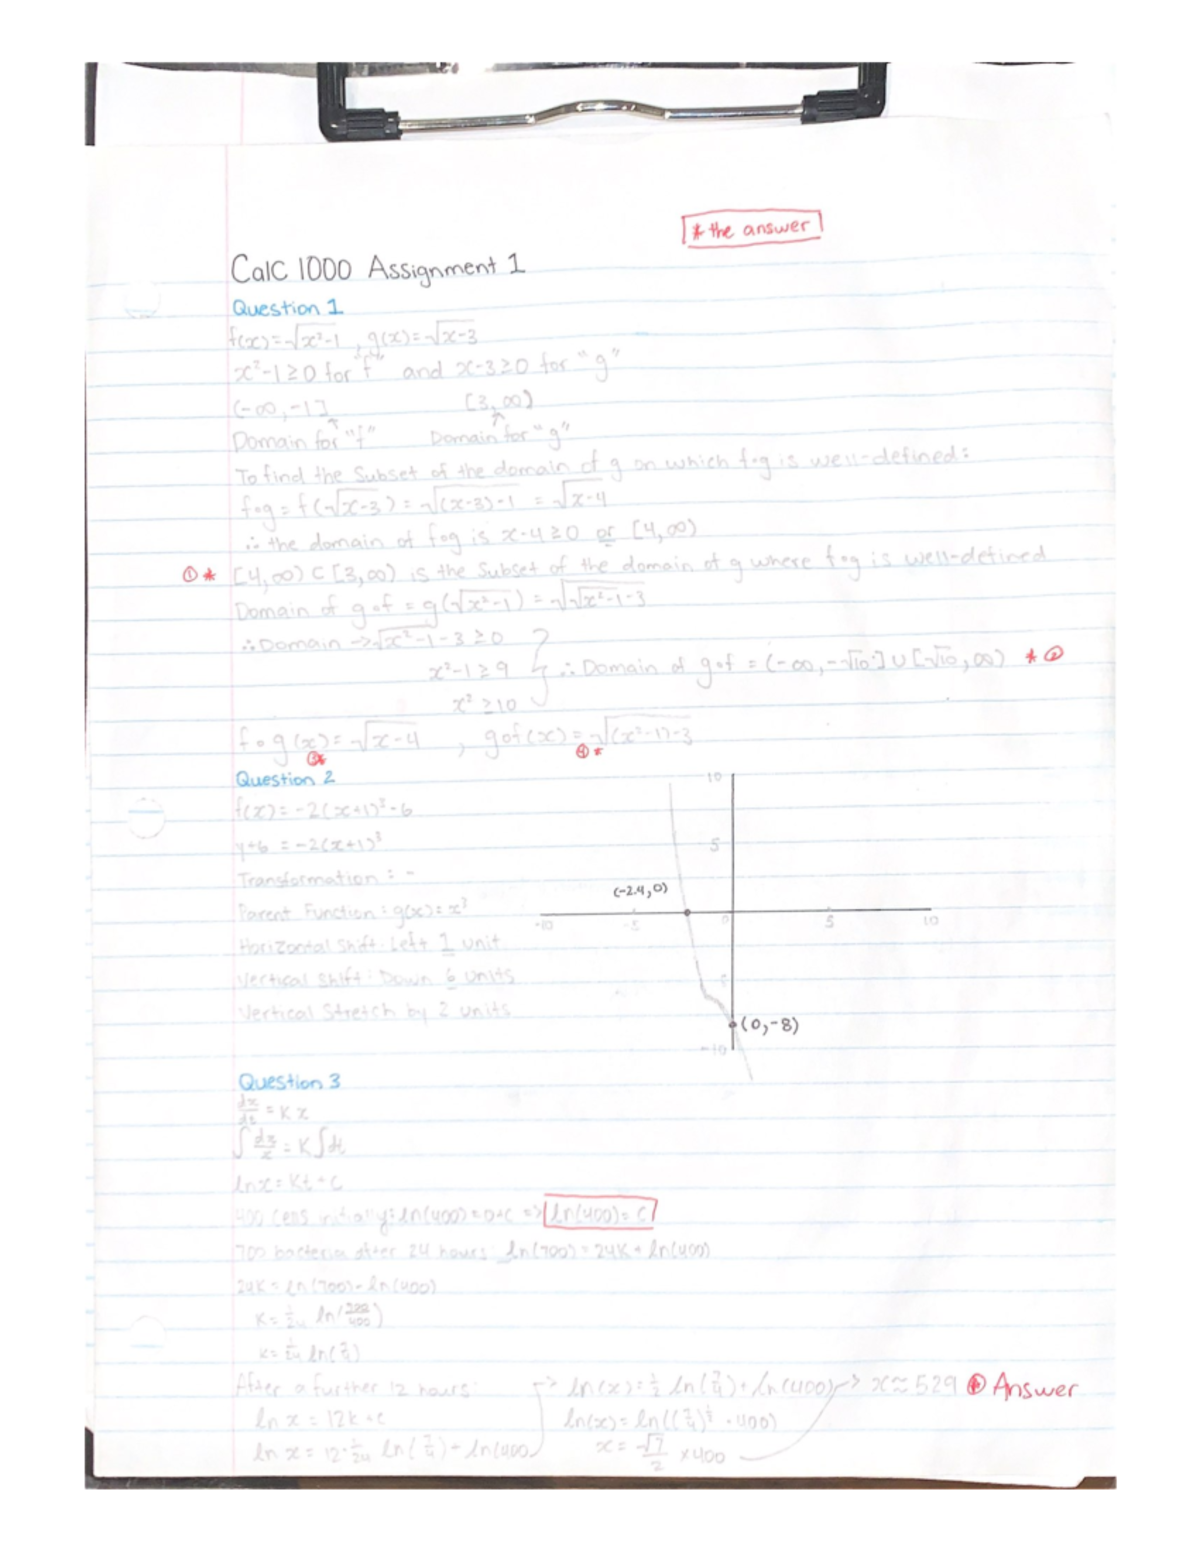 * the answer
Calc 1000 Assignment 1
Question 1
f(x)=√x²-1 , g(x)=√x-3
x²-1≥0 for "f" and x-3≥0 for "g"
(-∞,-1] [3,∞)
Domain for "f" Domain for "g"
To find the Subset of the domain of g on which f∘g is well-defined:
f∘g = f(√x-3) = √(x-3)-1 = √x-4
∴ the domain of f∘g is x-4≥0 or [4,∞)
① * [4,∞) ⊂ [3,∞) is the Subset of the domain of g where f∘g is well-defined
Domain of g∘f = g(√x²-1) = √√x²-1-3
∴ Domain → √x²-1-3≥0
x²-1≥9 ∴ Domain of g∘f = (-∞,-√10] ∪ [√10,∞) * ②
x²≥10
f∘g(x)=√x-4 , g∘f(x)=√(x²-1)-3
③* ④*
Question 2
f(x)=-2(x+1)³-6
y+6 = -2(x+1)³
Transformation : -
Parent Function : g(x)=x³
Horizontal Shift: Left 1 unit
Vertical Shift: Down 6 units
Vertical Stretch by 2 units
10
5
(-2.4,0)
-10 -5 0 5 10
(0,-8)
-10
Question 3
dx/dt = Kx
∫dx/x = K∫dt
lnx = Kt+C
400 cells initially: ln(400)=0+C => ln(400)=C
700 bacteria after 24 hours: ln(700)=24K+ln(400)
24K=ln(700)-ln(400)
K=1/24 ln(700/400)
K=1/24 ln(7/4)
After a further 12 hours: → ln(x)=1/2 ln(7/4)+ln(400) → x≈529 * Answer
ln x = 12K+C ln(x)=ln((7/4)^½ · 400)
ln x = 12·1/24 ln(7/4)+ln(400) x=√7/2 ×400